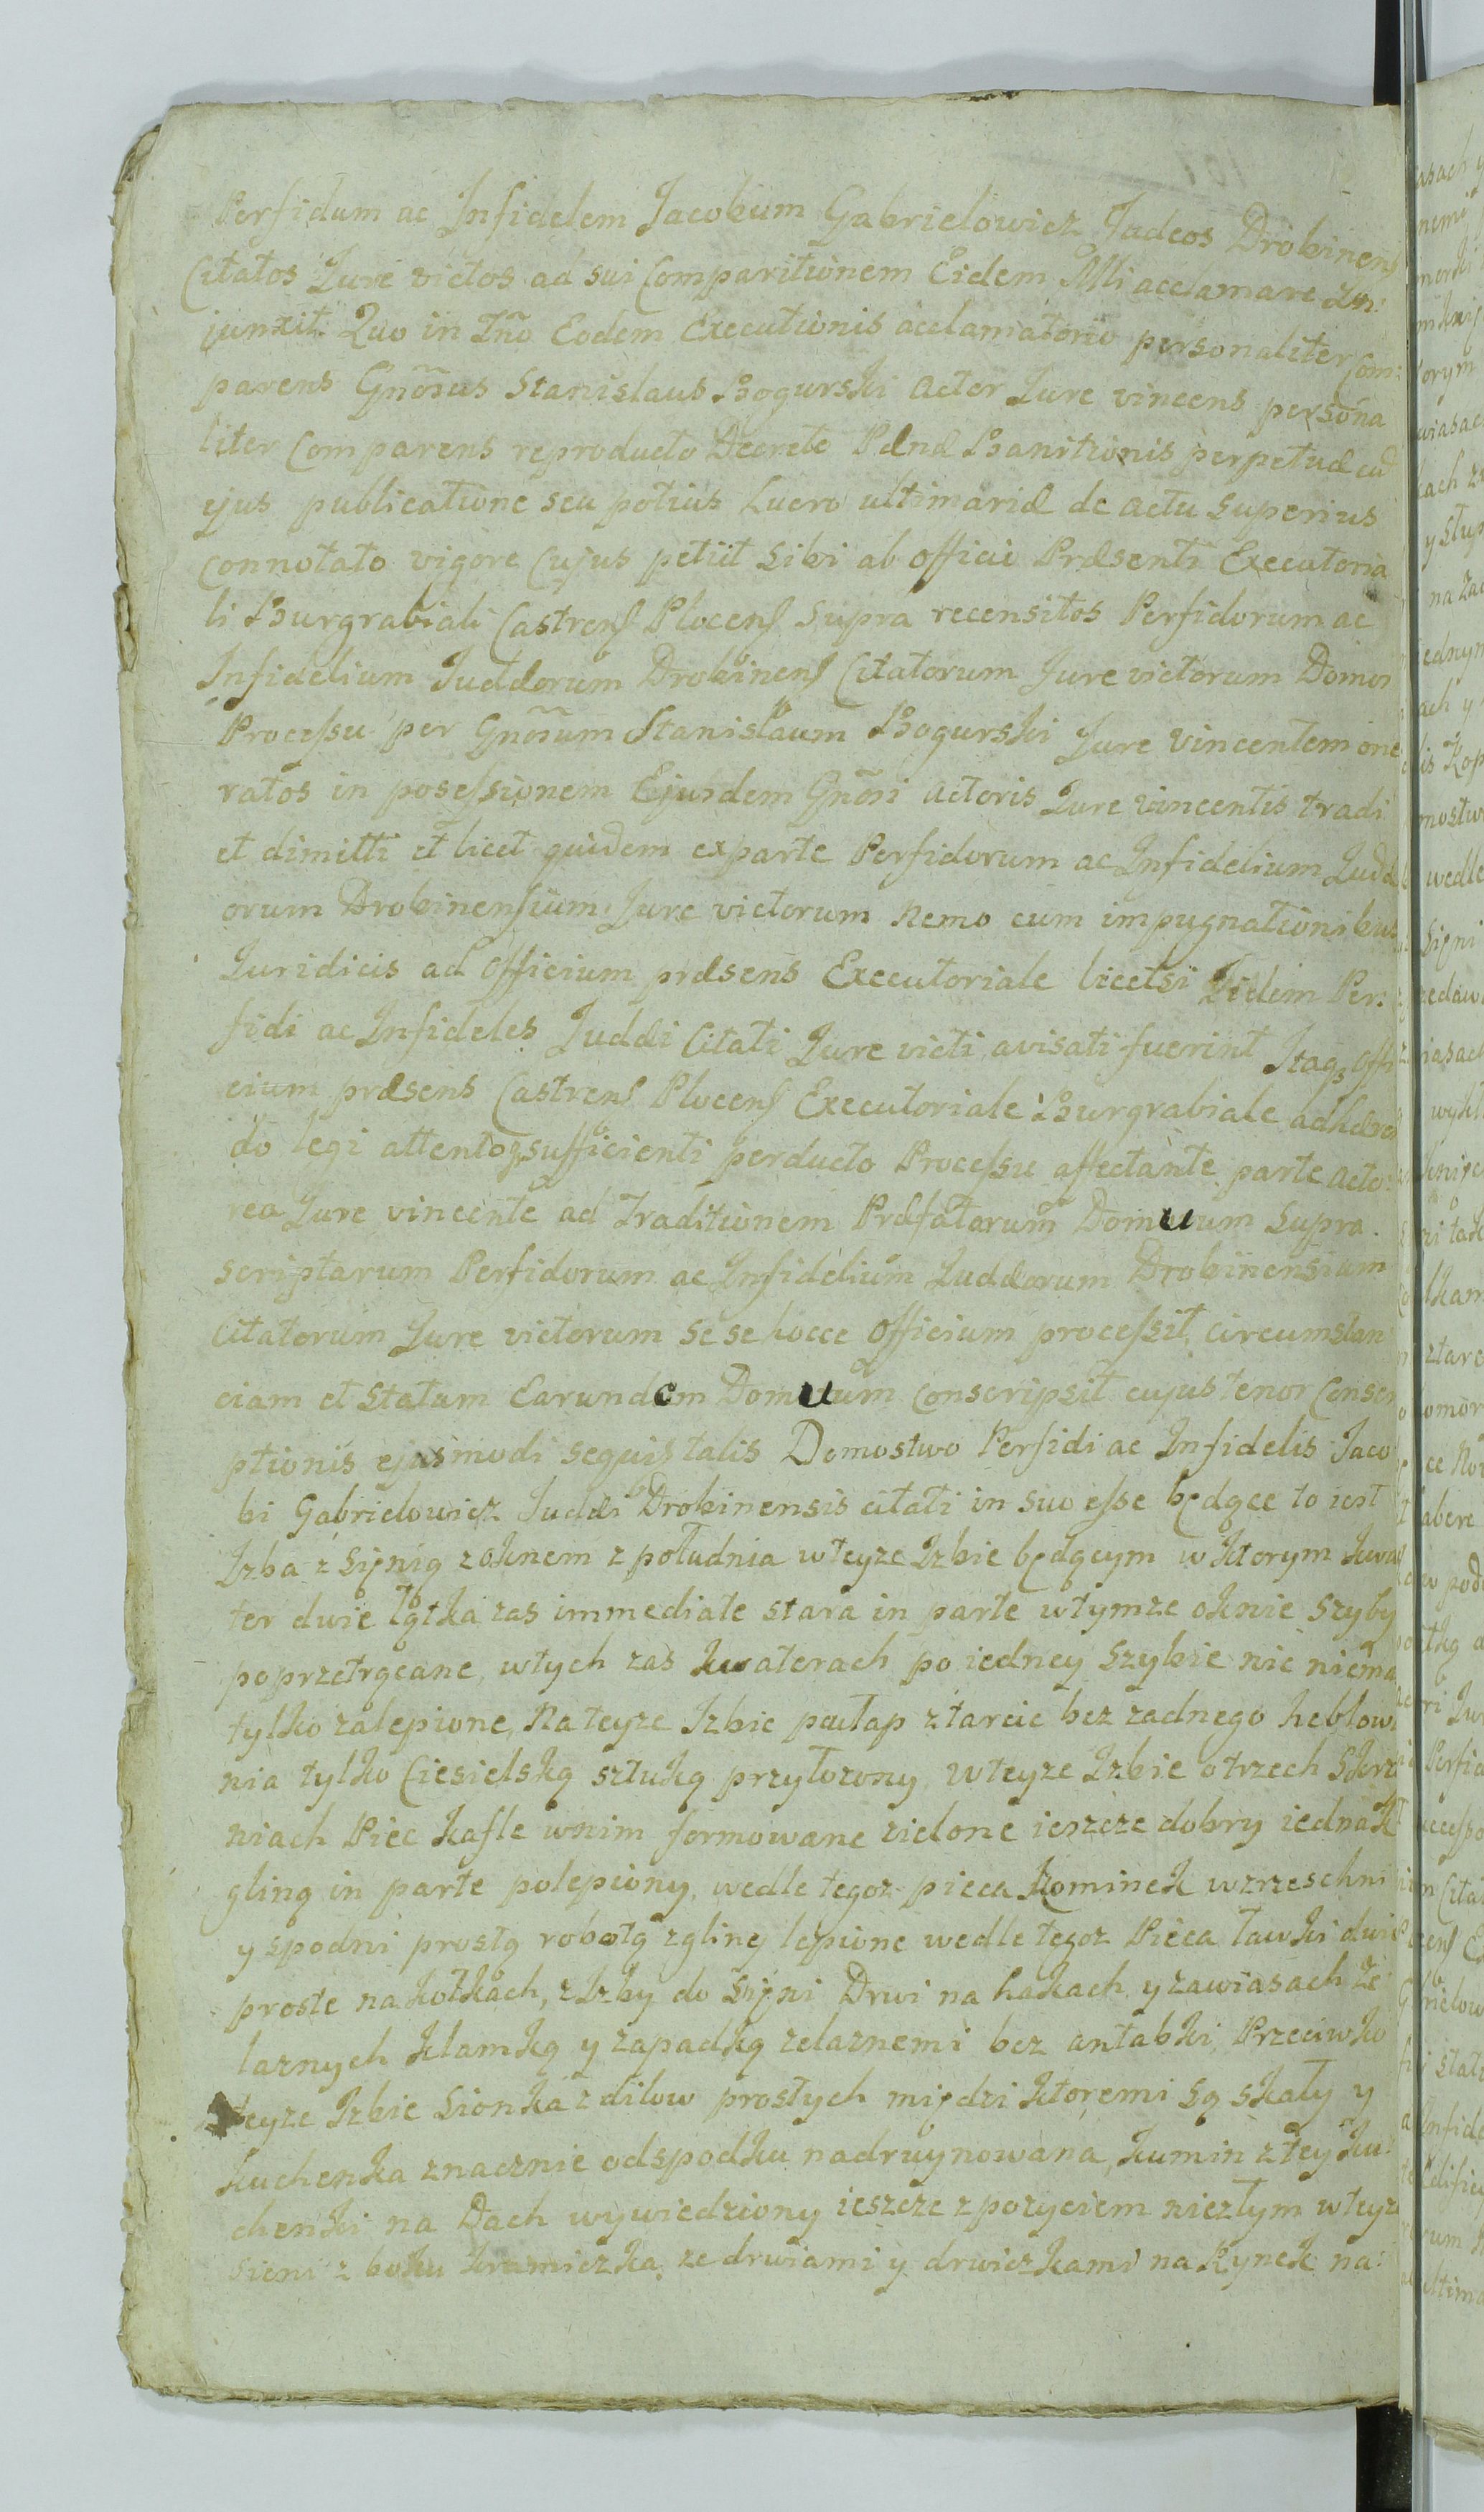 Perfidum ac Infidelem Jacobum Gabrielowicz Judeos Drobinens
Citatos Jure victos ad sui Comparitionem Eidem Mli acclamare In:
junxit. Quo in Tño Eodem Executionis acclamatorio personaliter Com:
parens Gnõsus Stanislaus Bogurski Actor Jure vincens persona
liter Comparens reproducto Decreto Pænæ Banitionis perpetuæ cũ
ejus publicatione seu potius Lucro ultimariæ de Actu Superius
Connotato vigore Cujus petiit Sibi ab Officio Præsenti Executoria
li Burgrabiali Castrens Plocens Supra recensitos Perfidorum ac
Infidelium Judæorum Drobinens Citatorum Jure victorum Domos
Processu per Gnõsum Stanislaum Bogurski Jure Vincentem one
ratos in posessionem Ejusdem Gnõsi Actoris Jure vincentis tradi
et dimitti et licet quidem exparte Perfidorum ac Infidelium Judæ
orum Drobinensium Jure victorum Nemo cum impugnationibus
Juridicis ad Officium præsens Executoriale licetsi Iidem Per:
fidi ac Infideles Judæi Citati Jure victi avisati fuerint Itaq3 Offi
cium præsens Castrens Plocens Executoriale Burgrabiale adhæren
do legi attentoq3 sufficienti perducto Processu affectante parte Acto:
rea Jure vincente ad Traditionem Præfatarum Domuum Supra.
scriptarum Perfidorum ac Infidelium Judæorum Drobinensium
Citatorum Jure victorum se se hocce Officium processit, circumstan
ciam et Statum Earundem Domuum Conscripsit cujus tenor Conscri
ptionis ejusmodi sequis talis Domostwo Perfidi ac Infidelis Jaco
bi Gabrielowicz Judæi Drobinensis citati in suo esse będące to iest
Izba z Sięnią z oknem z południa wteyze Izbie będącym w ktorym kwa
ter dwie łątka zas immediate stara in parte wtymze oknie Szyby
poprzetrącane, wtych zas kwaterach po iedney Szybie nie niema
tylko zalepione, Na teyze Izbie pułap z tarcic bez zadnego heblowa
nia tylko Ciesielską sztuką przyłozony, wteyze Izbie o trzech Skrzy
niach Piec kafle wnim formowane zielone ieszcze dobry iednak
gliną in parte polepiony, wedle tegoz pieca Kominek wzrzeschni
y spodni prostą robotą zgliny lepione wedle tegoz Pieca ławki dwie
proste na kołkach, z Izby do Siẹni Drwi na hakach y zawiasach że
laznych klamką y zapadką zelaznemi bez antabki, Przeciwko
teyze Izbie Sionka z dilow prostych między ktoremi są skały y
kuchenka znacznie odspodku nadruynowana, kumin z tey ku:
chenki na Dach wywiedziony ieszcze z pozyciem niezłym wteyze
sieni z boku kramiczka, ze drwiami y drwiczkami na Rynek na: